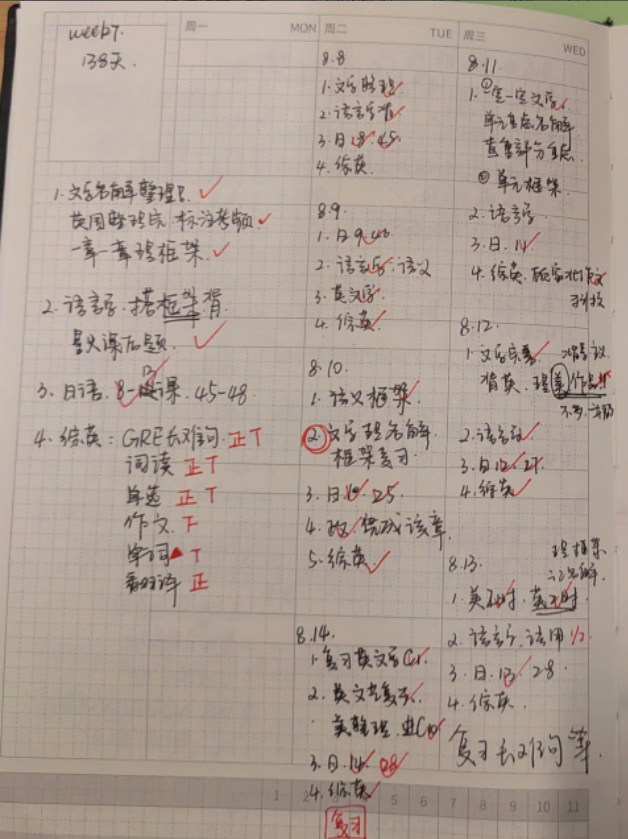 周一 MON 周二 TUE 周三 WED
week7.
138天.
1.文学名解整理完
英国整理完.标注考频
一章一章理框架
2.语言学.搭框架背
课后题
3.日语.8-13课.45-48
4.综英:GRE长难句.正T
词读 正T
单选 正T
作文 下
单词▲T
翻译 正
8.8
1.文学整理
2.语言学背
3.日 8.45
4.综英
8.9
1.日9.46
2.语言学.语义
3.英文学
4.综英
8.10
1.语义框架
2.文学理名解
框架复习
3.日.10.25
4.完成该章
5.综英
8.14.
1.复习英文学C1.
2.英文学复习.
美整理
3.日.14 28
4.综英
复习
8.11.
1.①一定一定文学.
单元重点名解
②单元框架
2.语言学
3.日.14
4.综英
科技
8.12.
1.文学
背英.理美作品
2.语言学
3.日12.27
4.综英
8.13.
理框架
记名解.
1.英
2.语言学.语用1/2
3.日.13 28.
4.综英.
复习长难句等.
1 2 5 6 7 8 9 10 11